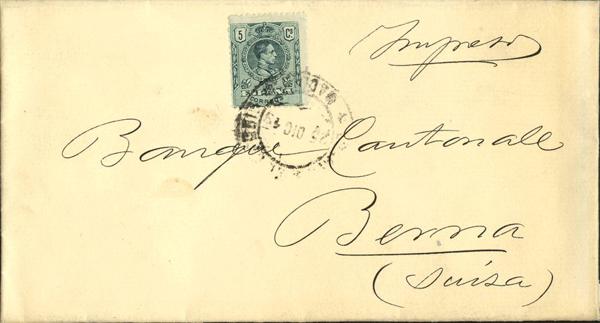 5 Cs
CORREOS
Impreso
Banque Cantonale
Berna
(Suisa)